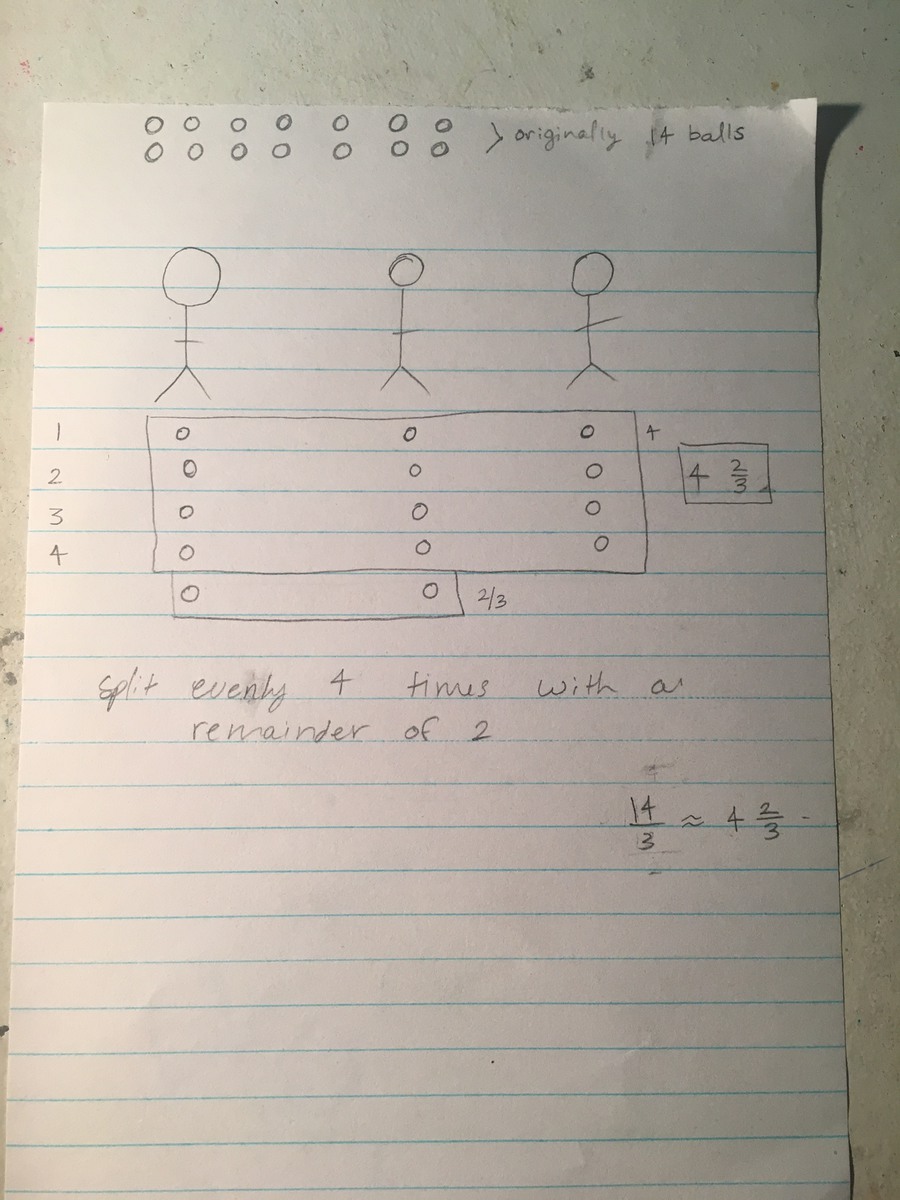 > originally 14 balls
1 4
2 4 2/3
3
4
2/3
Split evenly 4 times with a
remainder of 2
14/3 ≈ 4 2/3